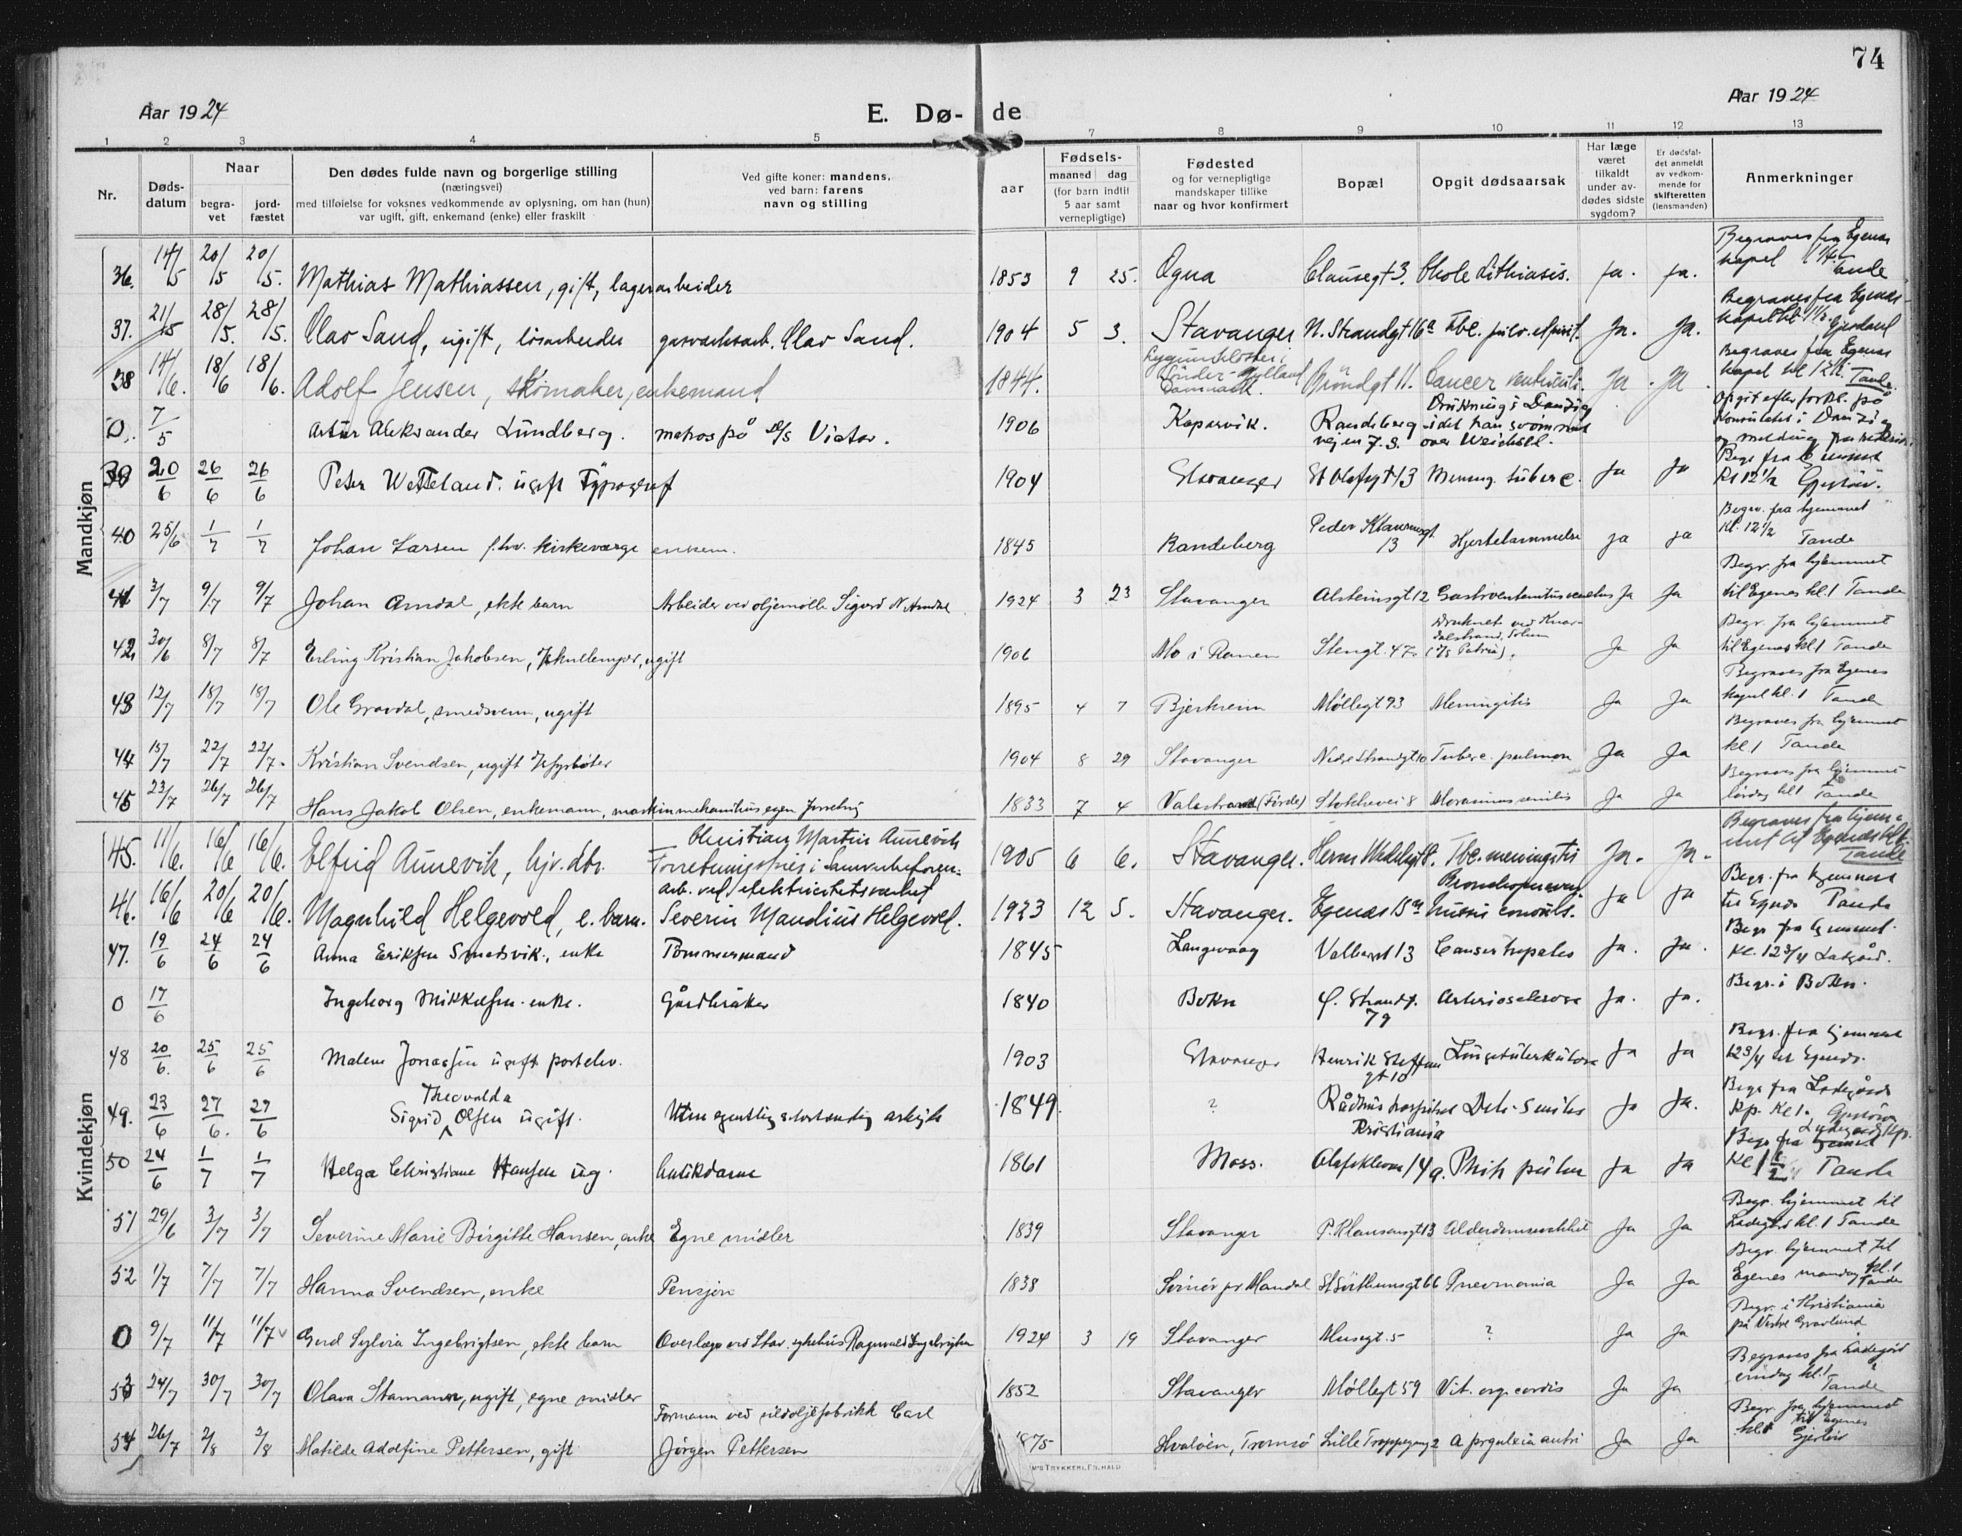 74
Aar 1924
E. Dø-
de
Aar 1924
1 2 3 4 5 6 7 8 9 10 11 12 13
Nr.
Døds-
datum
Naar
begra-
vet
jord-
fæstet
Den dødes fulde navn og borgerlige stilling
(næringsvei)
med tilføielse for voksnes vedkommende av oplysning, om han (hun)
var ugift, gift, enkemand (enke) eller fraskilt
Ved gifte koner: mandens,
ved barn: farens
navn og stilling
aar
Fødsels-
maaned dag
(for barn indtil
5 aar samt
vernepligtige)
Fødested
og for vernepligtige
mandskaper tillike
naar og hvor konfirmert
Bopæl
Opgit dødsaarsak
Har læge
været
tilkaldt
under av-
dødes sidste
sygdom?
Er dødsfal-
det anmeldt
av vedkom-
mende for
skifteretten
(lensmanden)
Anmerkninger
Mandkjøn
36. 14/5 20/5 20/5. Mathias Mathiassen, gift, lagerarbeider 1853 9 25. Ogna Clausegt 3. Chole lithiasis. ja. ja. Begraves fra Egenes kapel Tande
37. 21/5 28/5. 28/5. Olav Sand, ugift, løsarbeider gasverksarb. Olav Sand. 1904 5 3. Stavanger N. Strandgt 16a Tbc. pulv. Ja. Ja. Begraves fra Egenes kapel kl.
38 14/6. 18/6 18/6. Adolf Jensen, skomaker, enkemand 1844. Danmark. Grøndgt 11. Cancer ventriculi. Ja. Ja. Begraves fra Egenes kapel kl 12½. Tande
0. 7/5 Artur Aleksander Lundberg. matros på D/S Victor. 1906 Kopervik. Randeberg veien 7. Drukning i Danzig idet han svømmet over Weichsel. Opgit efter forkl. på Konsulatet i Danzig
39 20/6 26/6 26/6 Peter Wetteland. ugift Typograf 1904 Stavanger St Olafsgt 13 Mening. tuberc. Ja Ja Begr fra hjemmet Kl 12½
40 25/6 1/7 1/7 Johan Larsen f.hv. kirkeværge enkem. 1845 Randeberg Peder Klausensgt. 13 Hjertelammelse ja ja Begr. fra hjemmet Kl. 12½ Tande
41 3/7 9/7 9/7 Johan Amdal, ekte barn Arbeider ved oljemølle Sigurd N. Amdal 1924 3 23 Stavanger Alsteinsgt 12 Ja Ja Begr. fra hjemmet til Egenes kl 1 Tande
42. 30/6 8/7 8/7 Erling Kristian Jakobsen, ugift 1906 Mo i Ranen Stengt. 47. Druknet ved (S/S Patria). Ja Ja Begr. fra hjemmet til Egenes kl 1 Tande
43 12/7 18/7 18/7 Ole Gravdal, smedsvenn, ugift 1895 4 7 Bjerkreim Møllegt 93 Meningitis Ja Ja Begraves fra Egenes kapel kl. 1 Tande
44 15/7 22/7 22/7. Kristian Svendsen, ugift 1904 8 29 Stavanger Nedre Strandgt 10 Tuberc. pulmon Ja Ja Begraves fra hjemmet kl 1 Tande
45 23/7 26/7 26/7 Hans Jakob Olsen, enkemann, maskinmekanikus egen 1833 7 4 Valestrand (Førde) Stokkevei 8 Marasmus senilis Ja Ja Begraves fra hjemmet lørdag kl 1 Tande
Kvindekjøn
45. 11/6. 16/6 16/6. Elfrid Aunevik, hjv. dtr. Christian Martin Aunevik 1905 6 6. Stavanger. Herm Wedelsgt 8. Tbc. meningitis Ja. Ja. Begraves fra hjemmet til Egenes kl 1. Tande
46. 16/6 20/6 20/6. Magnhild Helgevold, e. barn. arb. ved elektricitetsverket Severin Mandius Helgevold. 1923 12 5. Stavanger. Egenes 15a Ja Ja Begr. fra hjemmet til Egenes Tande
47. 19/6 24/6 24/6 Anna Eriksen Smedsvik, enke Tømmermand 1845 Langevaag Valbergt 13 Cancer hepatis Ja. Ja. Begr fra hjemmet. Kl. 12¾
0 17/6 Ingeborg Mikkelsen enke. Gårdbruker 1840 Bokn Ø. Strandgt. 79 Arteriosclerose Ja. Ja. Begr. i Bokn.
48 20/6. 25/6 25/6 Malene Jonassen ugift portelev. 1903 Stavanger Henrik Steffens gt 10 Lungetuberkulose Ja Ja Begr. fra hjemmet 12¾ til Egenes.
49. 23/6 27/6. 27/6 Sigrid Theovalda Olsen ugift. Uten egentlig selvstændig arbeide 1849 ? Rådhus hospitalet Kristiania Deb. senilis Ja Ja. Begr fra Ladegård Kp. Kl 1.
50 24/6 1/7 1/7 Helga Christiane Hansen ug. Butikdame 1861 Moss. Olafskleven 14 a. Phtis pulm Ja Ja Begr fra Ladegård Kp. Kl 1½ Tande
51 29/6 3/7 3/7 Severine Marie Birgitte Hansen, enke Egne midler 1839 Stavanger P. Klausensgt 13 Alderdomssvakhet Ja Ja Begr. hjemmet til Ladegård kl. 1 Tande
52 1/7 7/7 7/7 Hanna Svendsen, enke Pensjon 1838 Svinør pr Mandal St Svithunsgt 66 Pneumonia Ja Ja Begr. hjemmet til Egenes mandag kl. 1 Tande
0 9/7 11/7 11/7 Gerd Sylvia Ingebrigtsen, ekte barn Overlæge ved Stav. sykehus Ragnvald Ingebrigtsen 1924 3 19 Stavanger Musegt. 5 ? Ja Ja Begr. i Kristiania på Vestre Gravlund
53 24/7 30/7 30/7 Olava Stamann, ugift, egne midler 1852 Stavanger Møllegt 59 Vit. org. cordis Ja Ja Begraves fra Ladegård kl 1 Tande
54 26/7 2/8 2/8 Matilde Adolfine Pettersen, gift Formann ved sildoljefabrikk Carl Jørgen Pettersen 1875 Hvaløen, Tromsø Lille Trappegang 2 Ja Ja Begr. fra hjemmet til Egenes kl 1
TRYKKERI, F. S. HALD